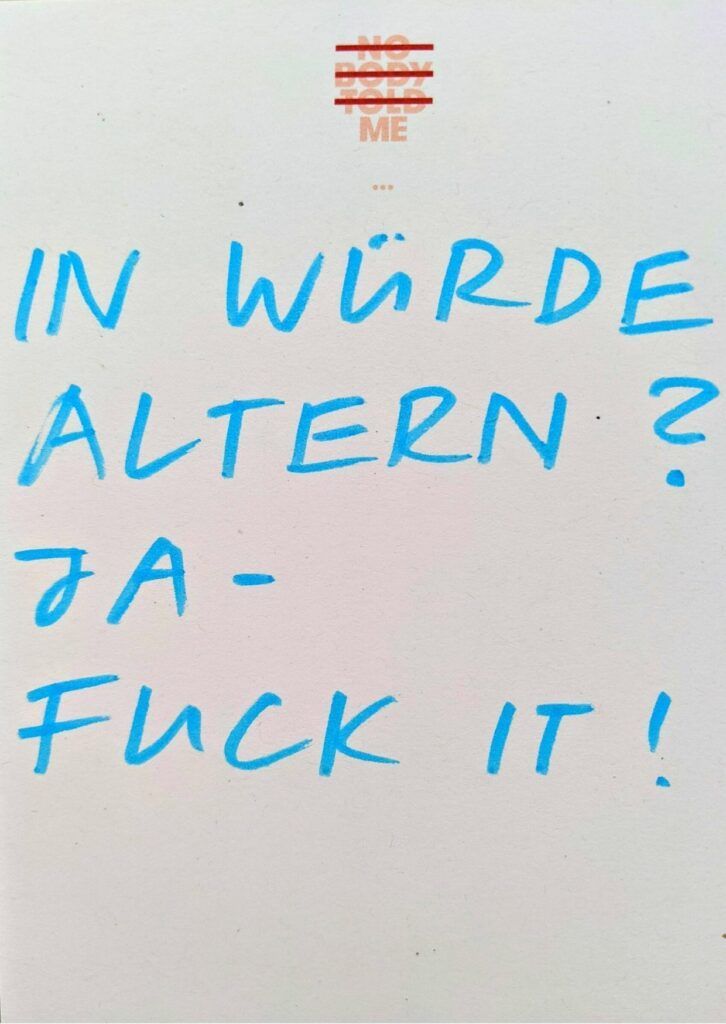 NO
BODY
TOLD
ME
...
IN WÜRDE
ALTERN ?
JA -
FUCK IT !